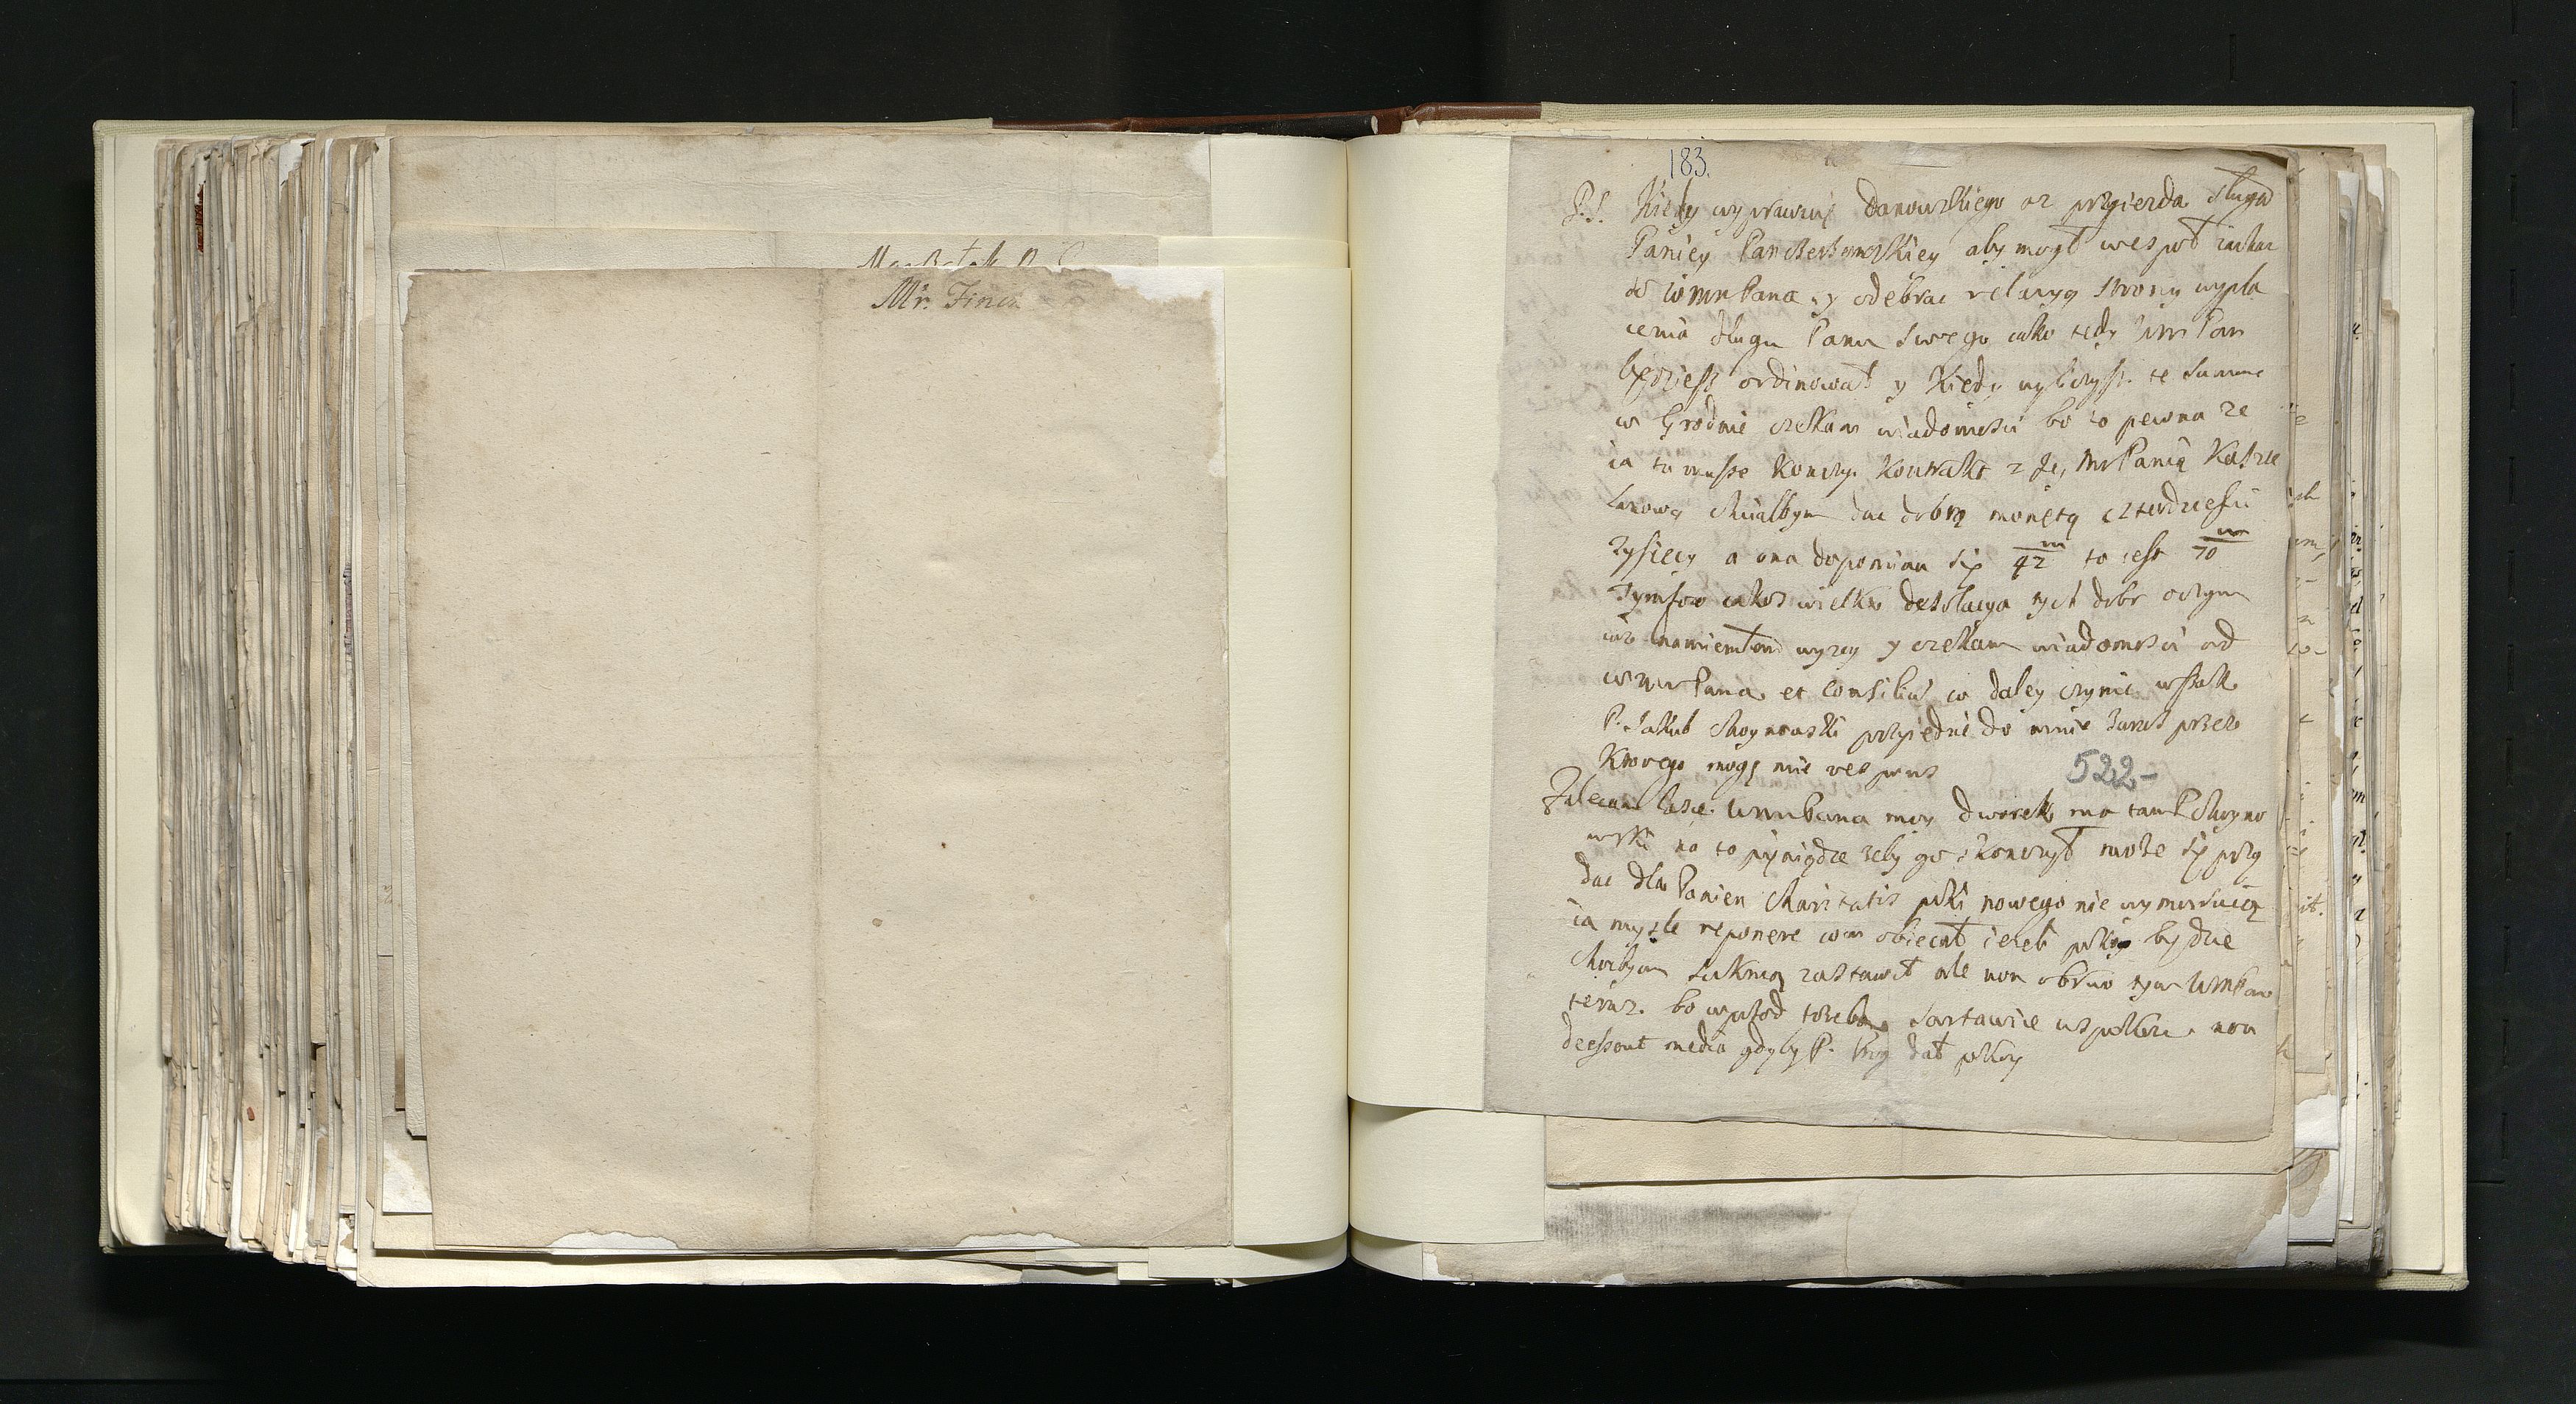 Mr. Finck
183.
P.S. Kiedy wyprawuię Danowskiego az przyiezda sługa
Paniey aby mogł wespoł iachac
do WmmPana, y odebrac relacyą strony wypła
cenia długu Panu swego iako tedy Wm Pan
będziesz ordinował y kiedy te summe
w Grodnie czekam wiadomosci bo to pewna ze
ia tu musze konczyc kontrakt z Je, MrPanią Kasztel
lanową chciałbym dac dobrą monetą czterdziesci
tysięcy a ona dopomina się 42 m to iest 70 m
Tymfow iakos wielka desolacya tych dobr oczym
iuz namieniłem wyzey y czekam wiadomosci od
WmmPana et consiliu co daley czynic wszak
P. Jakub Choynowski przyiedzie do mnie zaraz przez
ktorego mogę miec respons
522-
Zalecam łasce WmmPana moy dworek ma tam P Choyno
wski na to pieniądze zeby go skonczył moze się przy
dac dla Panien Charitatis poki nowego nie wymuruią
ia mysle reponere com obiecał iezeli pokoy będzie
chocbym suknią zastawił ale non obruo tym WmPana
teraz. bo wprzod trzeba Sartawice uspokoic. non
deessent media gdyby P. Bog dał pokoy